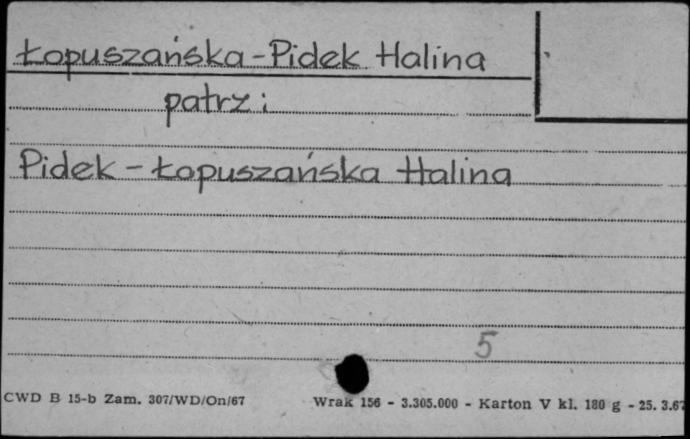 Łopuszańska-Pidek Halina
patrz:
Pidek-Łopuszańska Halina
5
CWD B 15-b Zam. 307/WD/On/67 Wrak 156 - 3.305.000 - Karton V kl. 180 g - 25. 3.67